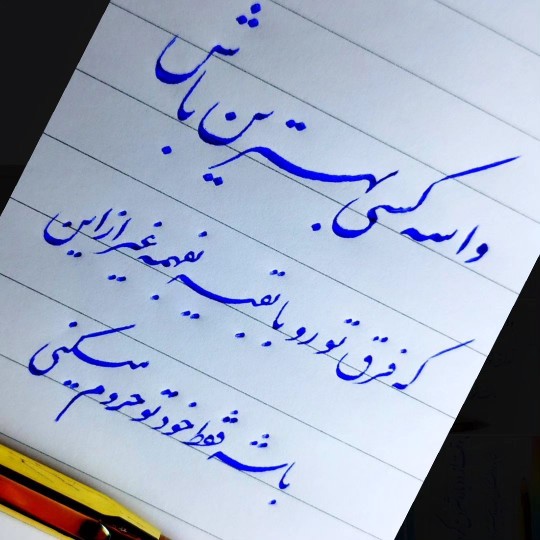 واسه کسی بهترین باش
که فرق تو رو با بقیه بفهمه غیر از این
باشه فقط خودتو حروم میکنی